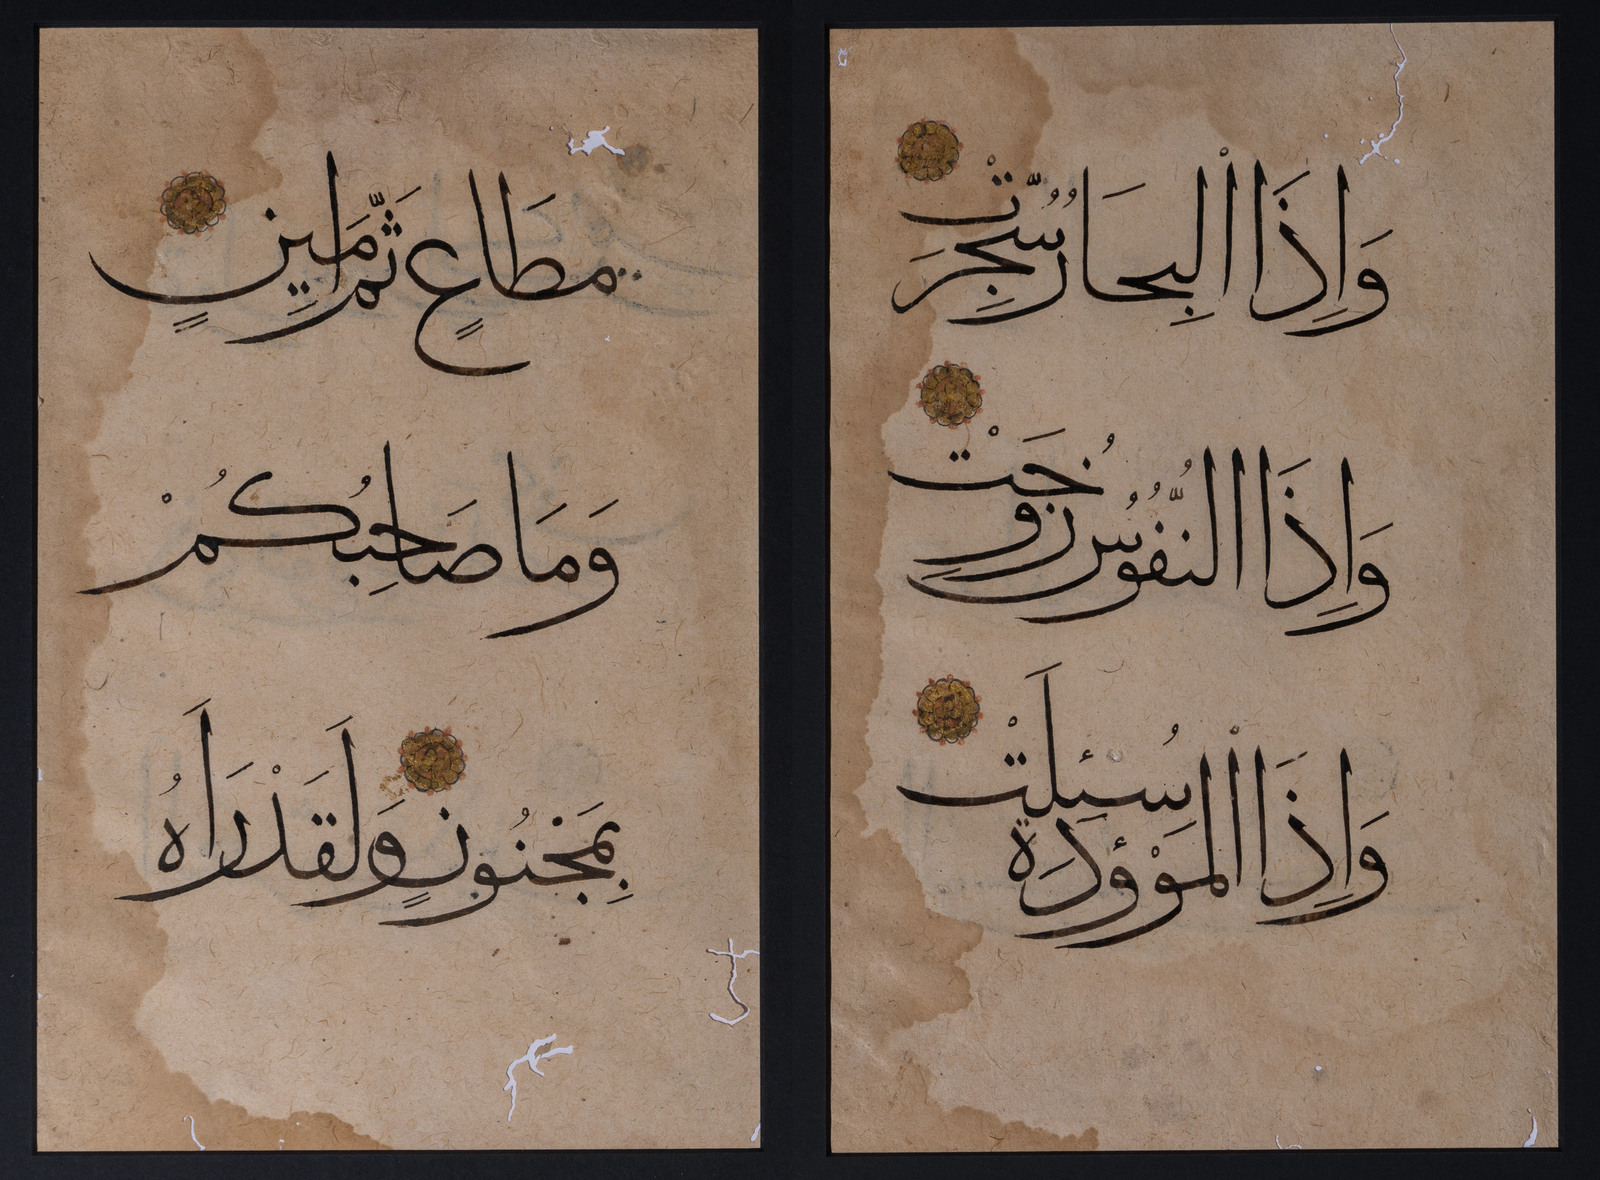 وَإِذَا الْبِحَارُ سُجِّرَتْ
وَإِذَا النُّفُوسُ زُوِّجَتْ
وَإِذَا الْمَوْؤُدَةُ سُئِلَتْ
مُطَاعٍ ثَمَّ أَمِينٍ
وَمَا صَاحِبُكُمْ
بِمَجْنُونٍ وَلَقَدْ رَاَهُ